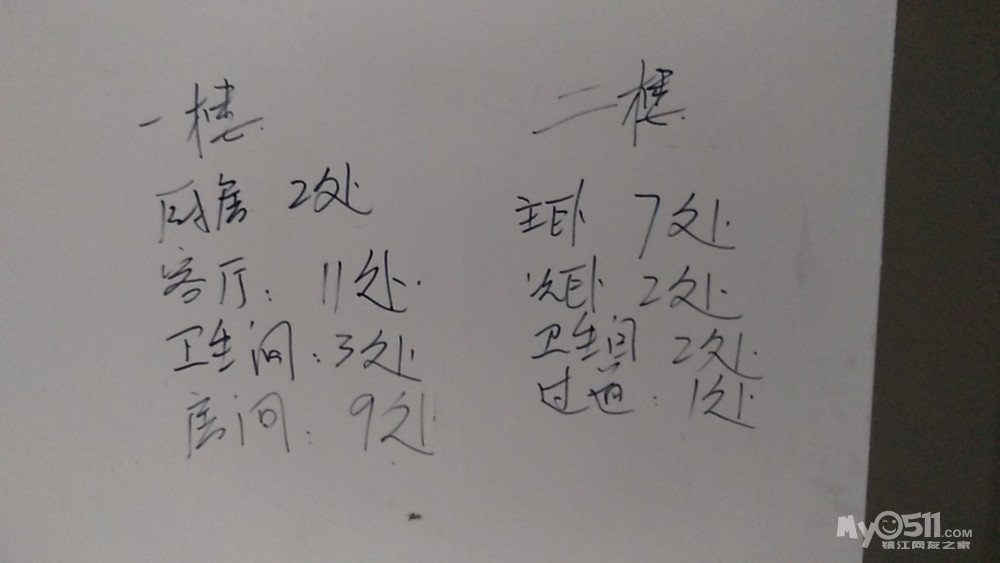 一楼
厨房 2处
客厅: 11处
卫生间: 3处
房间: 9处
二楼
主卧 7处
次卧 2处
卫生间 2处
过道: 1处
My0511.COM
镇江网友之家